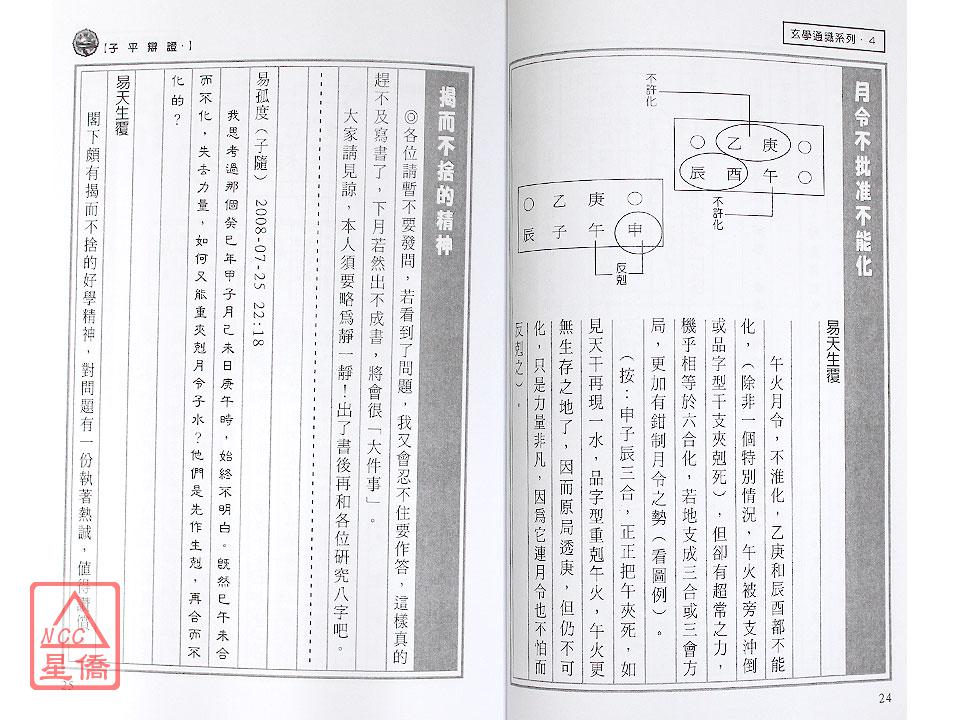 玄學通識系列·4
月令不批准不能化
不許化
○乙庚○
辰酉午○
不許化
○乙庚○
辰子午申
反剋
易天生覆
午火月令，不淮化，乙庚和辰酉都不能
化，（除非一個特別情況，午火被旁支沖倒
或品字型干支夾剋死），但卻有超常之力，
機乎相等於六合化，若地支成三合或三會方
局，更加有鉗制月令之勢（看圖例）。
（按：申子辰三合，正正把午夾死，如
見天干再現一水，品字型重剋午火，午火更
無生存之地了，因而原局透庚，但仍不可
化，只是力量非凡，因爲它連月令也不怕而
反剋之）。
24
【子平辯證·】
揭而不捨的精神
◎各位請暫不要發問，若看到了問題，我又會忍不住要作答，這樣真的
趕不及寫書了，下月若然出不成書，將會很「大件事」。
大家請見諒，本人須要略爲靜一靜！出了書後再和各位研究八字吧。
易孤度（子隨） 2008-07-25 22:18
我思考過那個癸巳年甲子月己未日庚午時，始終不明白。既然巳午未合
而不化，失去力量，如何又能重夾剋月令子水？他們是先作生剋，再合而不
化的？
易天生覆
閣下頗有揭而不捨的好學精神，對問題有一份執著熱誠，值得讚賞
25
NCC
星僑